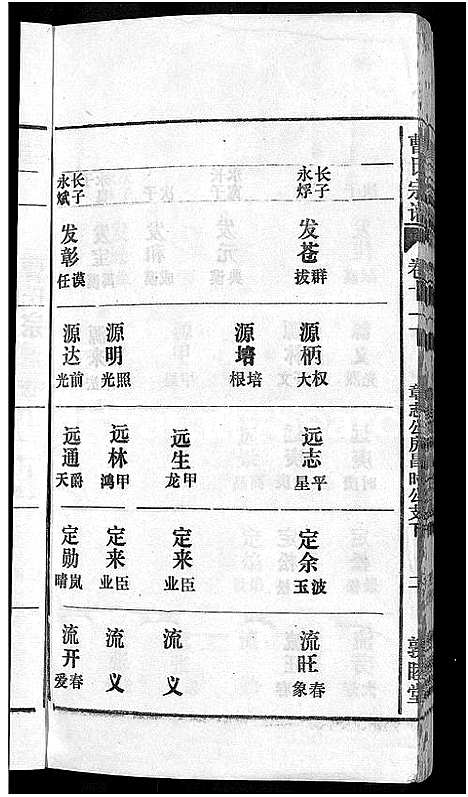 曹氏宗谱
卷十一下
章志公房昌时公支下
二
敦睦堂
永烰长子
发苍
拔群
源柄
大权
源培
根培
远志
星平
定余
玉波
流旺
象春
远生
龙甲
定来
业臣
流义
永斌长子
发彰
任谟
源明
光照
源达
光前
远林
鸿甲
定来
业臣
流义
远通
天爵
定勋
晴岚
流开
爱春